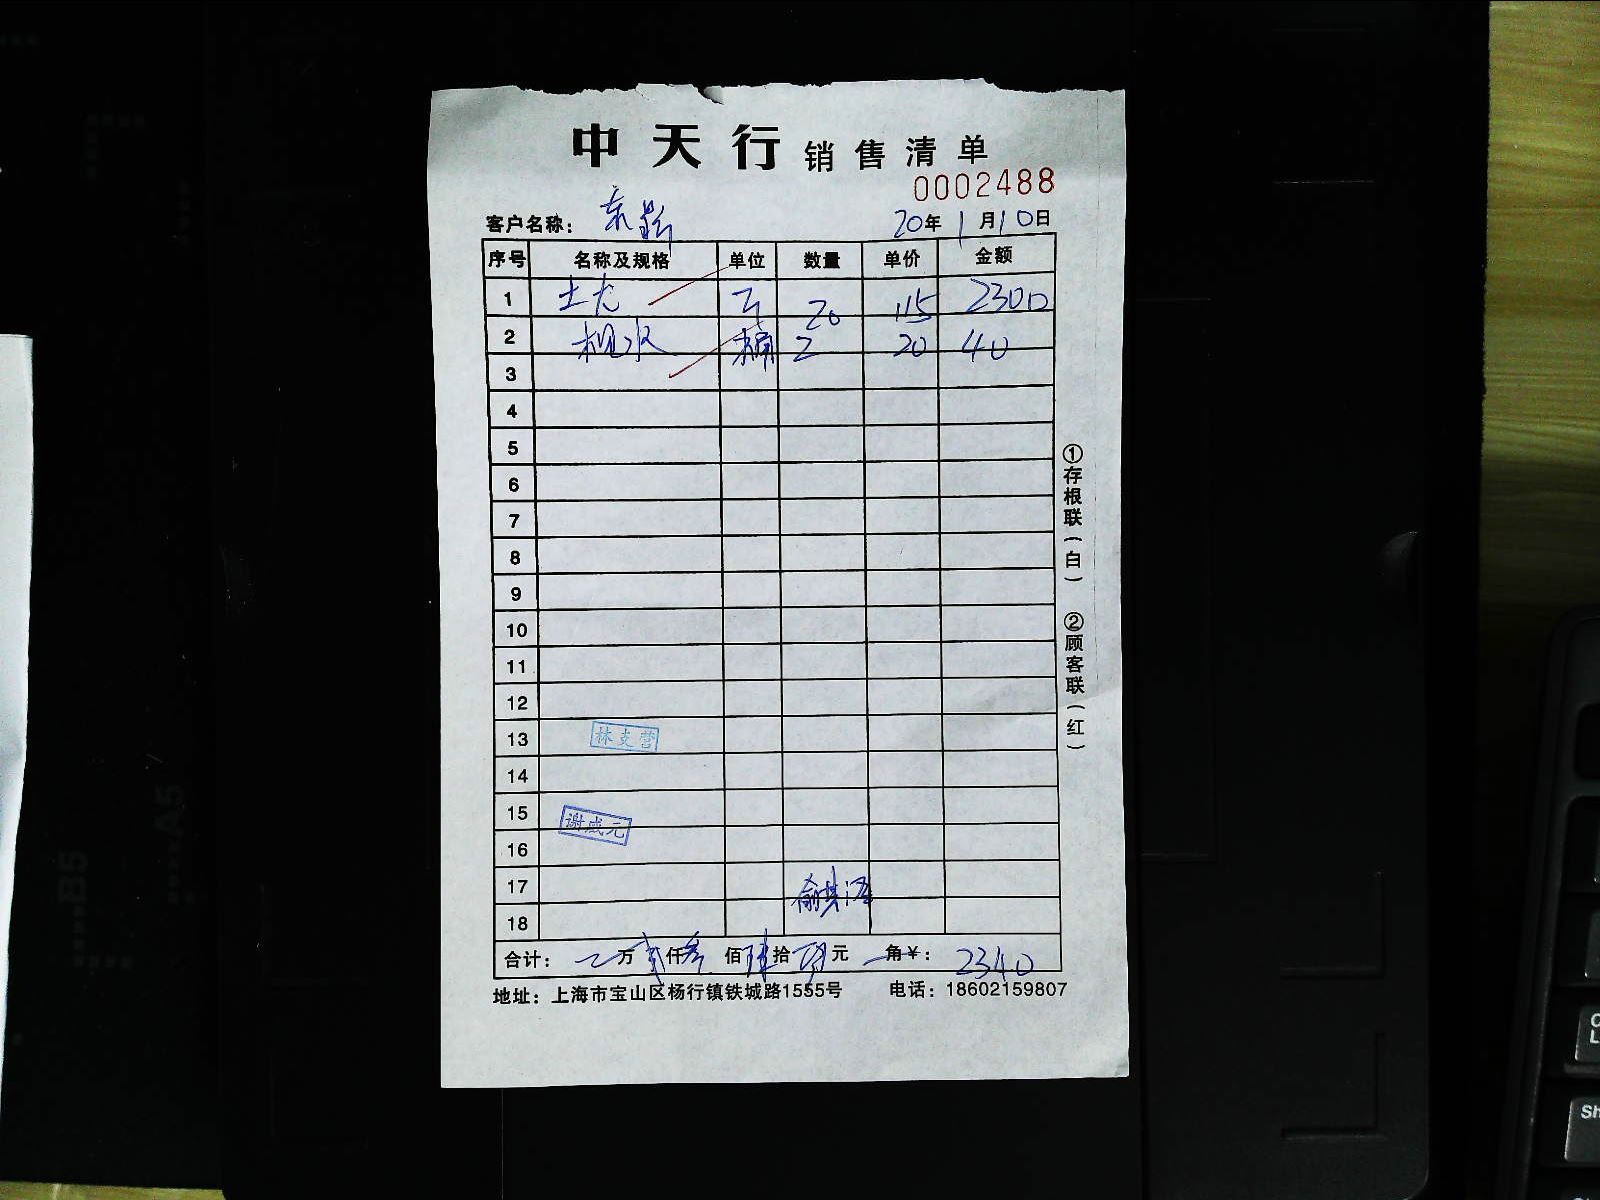 中天行 销售清单
0002488
客户名称: 20年1月10日
序号 名称及规格 单位 数量 单价 金额
1 土尤 20 115 2300
2 桶 2 20 40
3
4
5
6
7
8
9
10
11
12
13 林支营
14
15 谢成元
16
17
18
合计: 万 仟 佰 拾 元 角¥: 2340
地址: 上海市宝山区杨行镇铁城路1555号 电话: 18602159807
①存根联(白) ②顾客联(红)
B5
A5